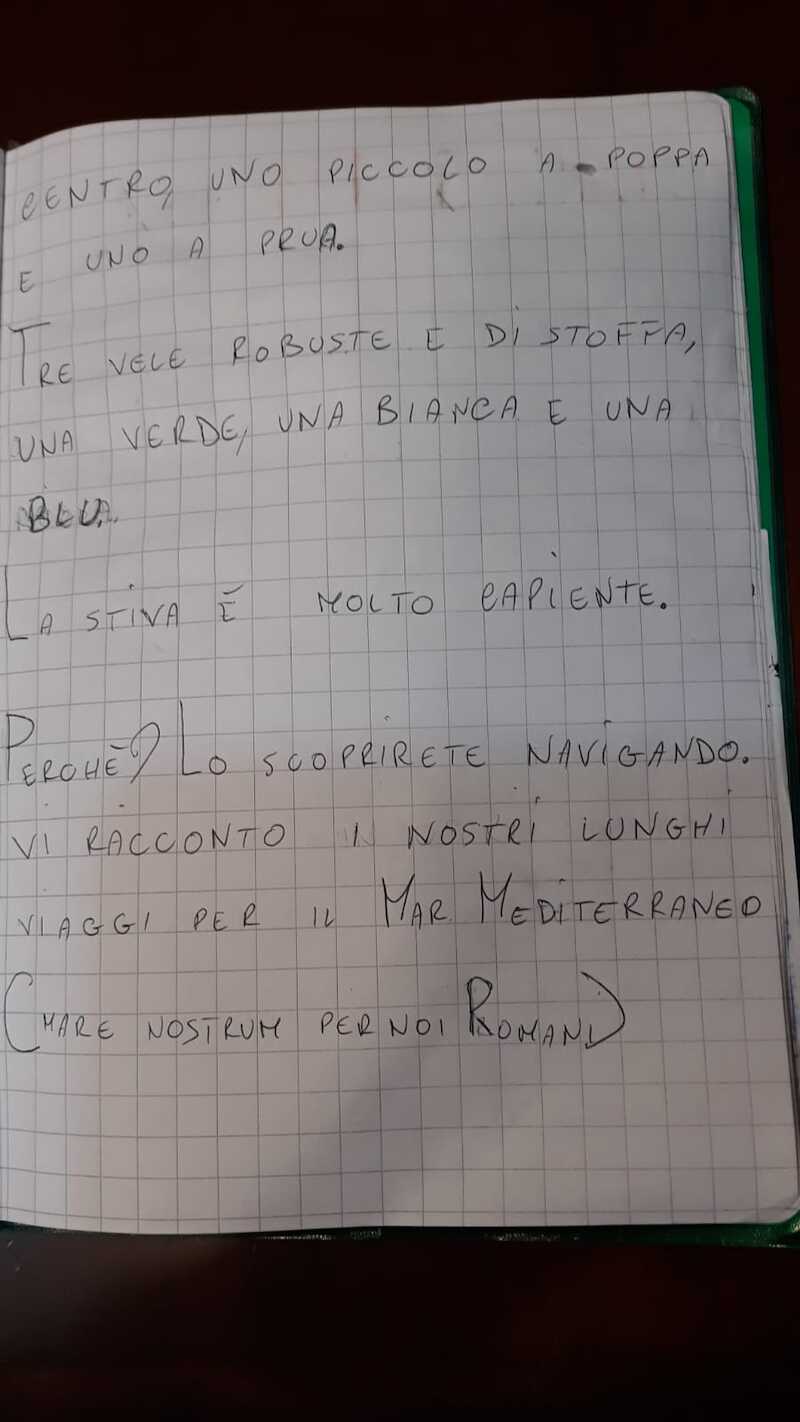 CENTRO, UNO PICCOLO A POPPA
E UNO A PRUA.
TRE VELE ROBUSTE E DI STOFFA,
UNA VERDE, UNA BIANCA E UNA
BLU.
LA STIVA È MOLTO CAPIENTE.
PERCHÈ? LO SCOPRIRETE NAVIGANDO.
VI RACCONTO I NOSTRI LUNGHI
VIAGGI PER IL MAR MEDITERRANEO
(MARE NOSTRUM PER NOI ROMANI)